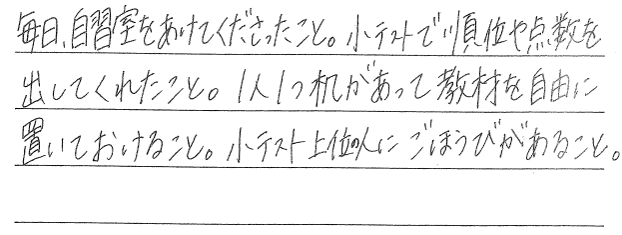 毎日、自習室をあけてくださったこと。小テストで順位や点数を
出してくれたこと。1人1つ机があって教材を自由に
置いておけること。小テスト上位の人にごほうびがあること。